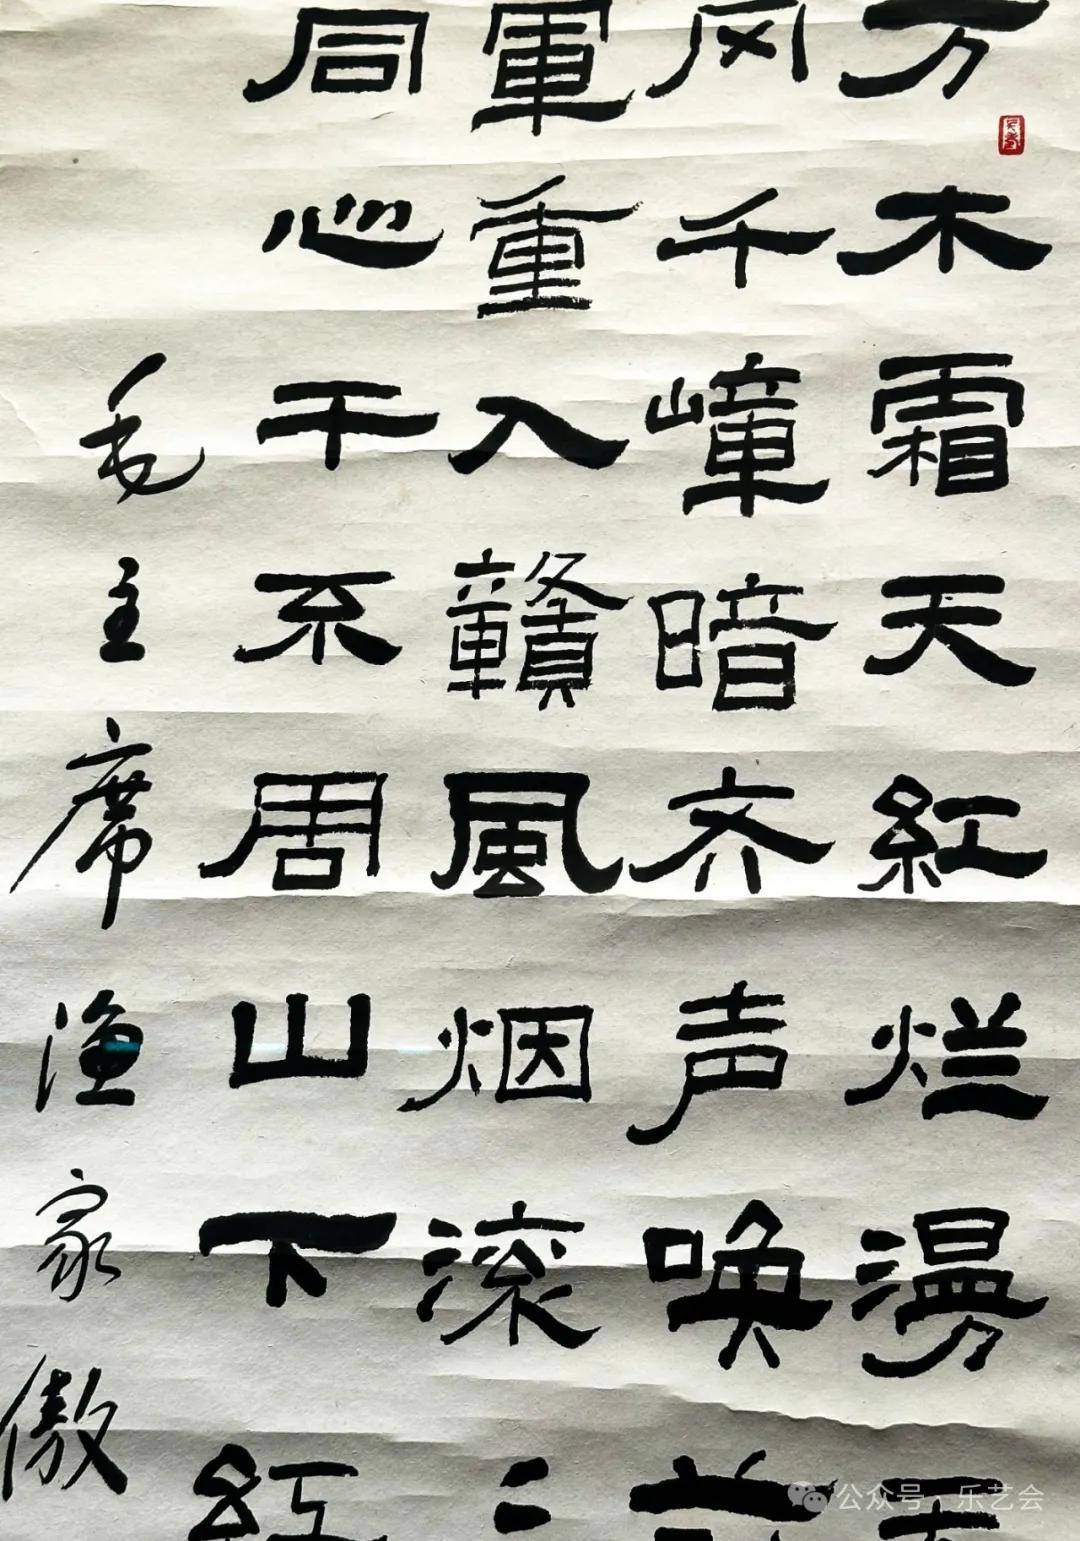 万木霜天紅烂漫天
冈千嶂暗齐声唤前
軍重入贛風烟滚〻
同心干不周山下紅
毛主席渔家傲
公众号·乐艺会